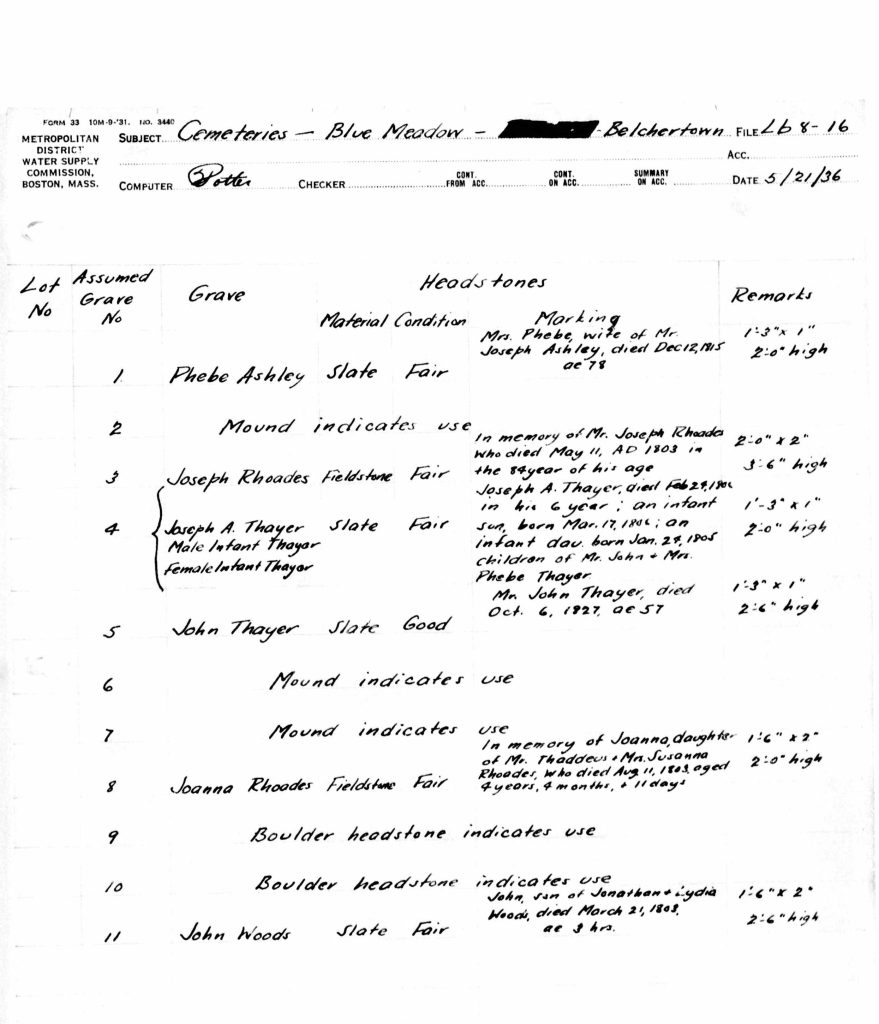 FORM 33 10M-9-'31. NO. 3440
METROPOLITAN
DISTRICT
WATER SUPPLY
COMMISSION,
BOSTON, MASS.
SUBJECT Cemeteries — Blue Meadow — - Belchertown FILE Lb 8-16
ACC.
COMPUTER Potter CHECKER CONT. FROM ACC. CONT. ON ACC. SUMMARY ON ACC. DATE 5/21/36
Lot No Assumed Grave No Grave Headstones Remarks
Material Condition Marking
Mrs. Phebe, wife of Mr. 1'-3" x 1"
Joseph Ashley, died Dec 12, 1815 2'-0" high
ae 78
1 Phebe Ashley Slate Fair
2 Mound indicates use
In memory of Mr. Joseph Rhoades 2'-0" x 2"
who died May 11, AD 1803 in
3 Joseph Rhoades Fieldstone Fair the 84 year of his age 3'-6" high
Joseph A. Thayer, died Feb 24,
in his 6 year; an infant 1'-3" x 1"
4 Joseph A. Thayer Slate Fair son, born Mar. 17, 1806; an 2'-0" high
Male Infant Thayer infant dau. born Jan. 24, 1805
Female Infant Thayer children of Mr. John & Mrs.
Phebe Thayer
Mr. John Thayer, died 1'-3" x 1"
Oct. 6, 1827, ae 57 2'-6" high
5 John Thayer Slate Good
6 Mound indicates use
7 Mound indicates use
In memory of Joanna, daughter 1'-6" x 2"
of Mr. Thaddeus & Mrs. Susanna
Rhoades, who died Aug 11, 1803, aged 2'-0" high
8 Joanna Rhoades Fieldstone Fair 4 years, 4 months, & 11 days
9 Boulder headstone indicates use
10 Boulder headstone indicates use
John, son of Jonathan & Lydia 1'-6" x 2"
Woods, died March 21, 1803,
ae 3 hrs. 2'-6" high
11 John Woods Slate Fair